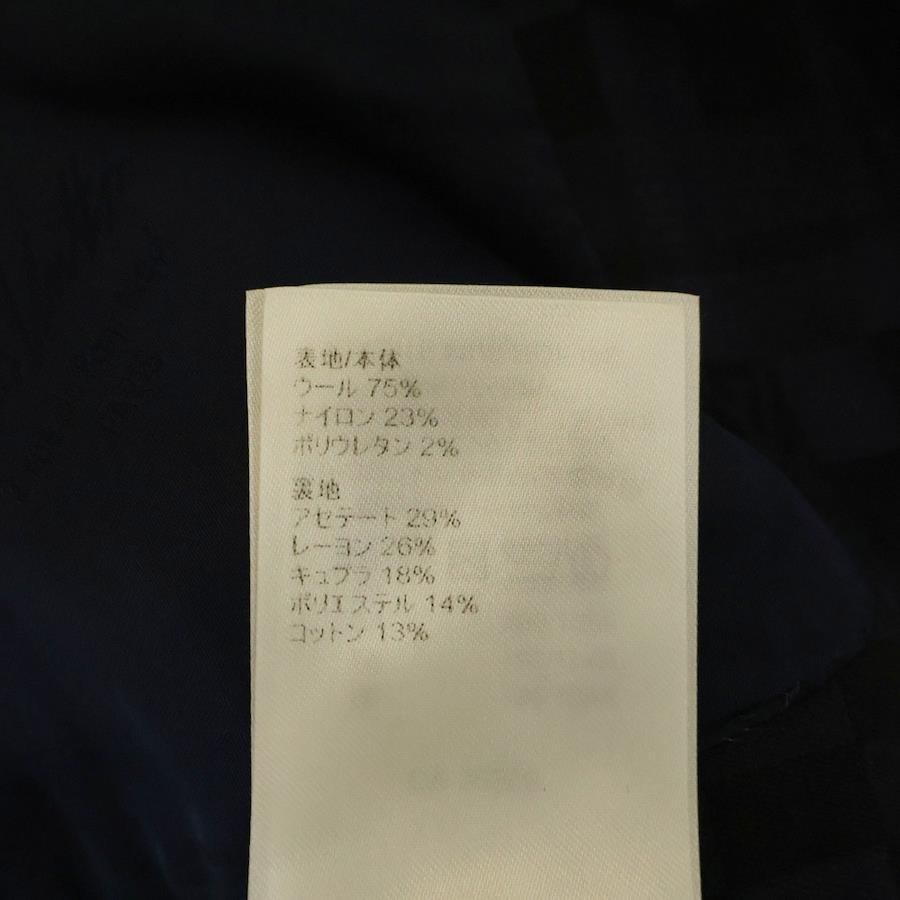 表地/本体
ウール 75%
ナイロン 23%
ポリウレタン 2%
裏地
アセテート 29%
レーヨン 26%
キュプラ 18%
ポリエステル 14%
コットン 13%